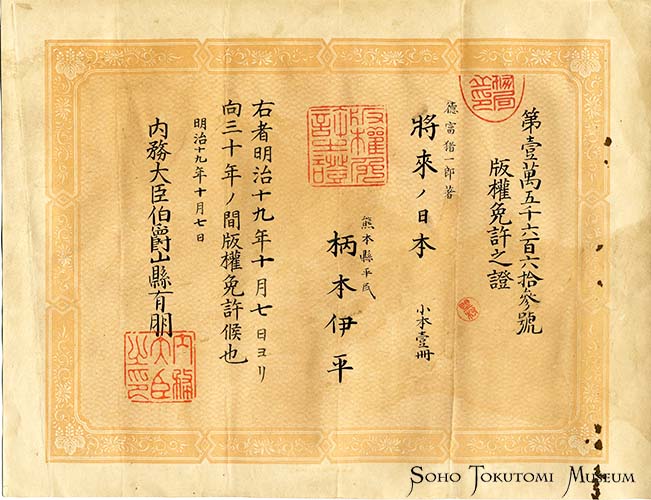 第壹萬五千六百六拾參號
版權免許之證
德富猪一郎著
將來ノ日本
小本壹冊
熊本縣平民
柄本伊平
右者明治十九年十月七日ヨリ
向三十年ノ間版權免許候也
明治十九年十月七日
內務大臣伯爵山縣有朋
內務大臣之印
SOHO TOKUTOMI MUSEUM